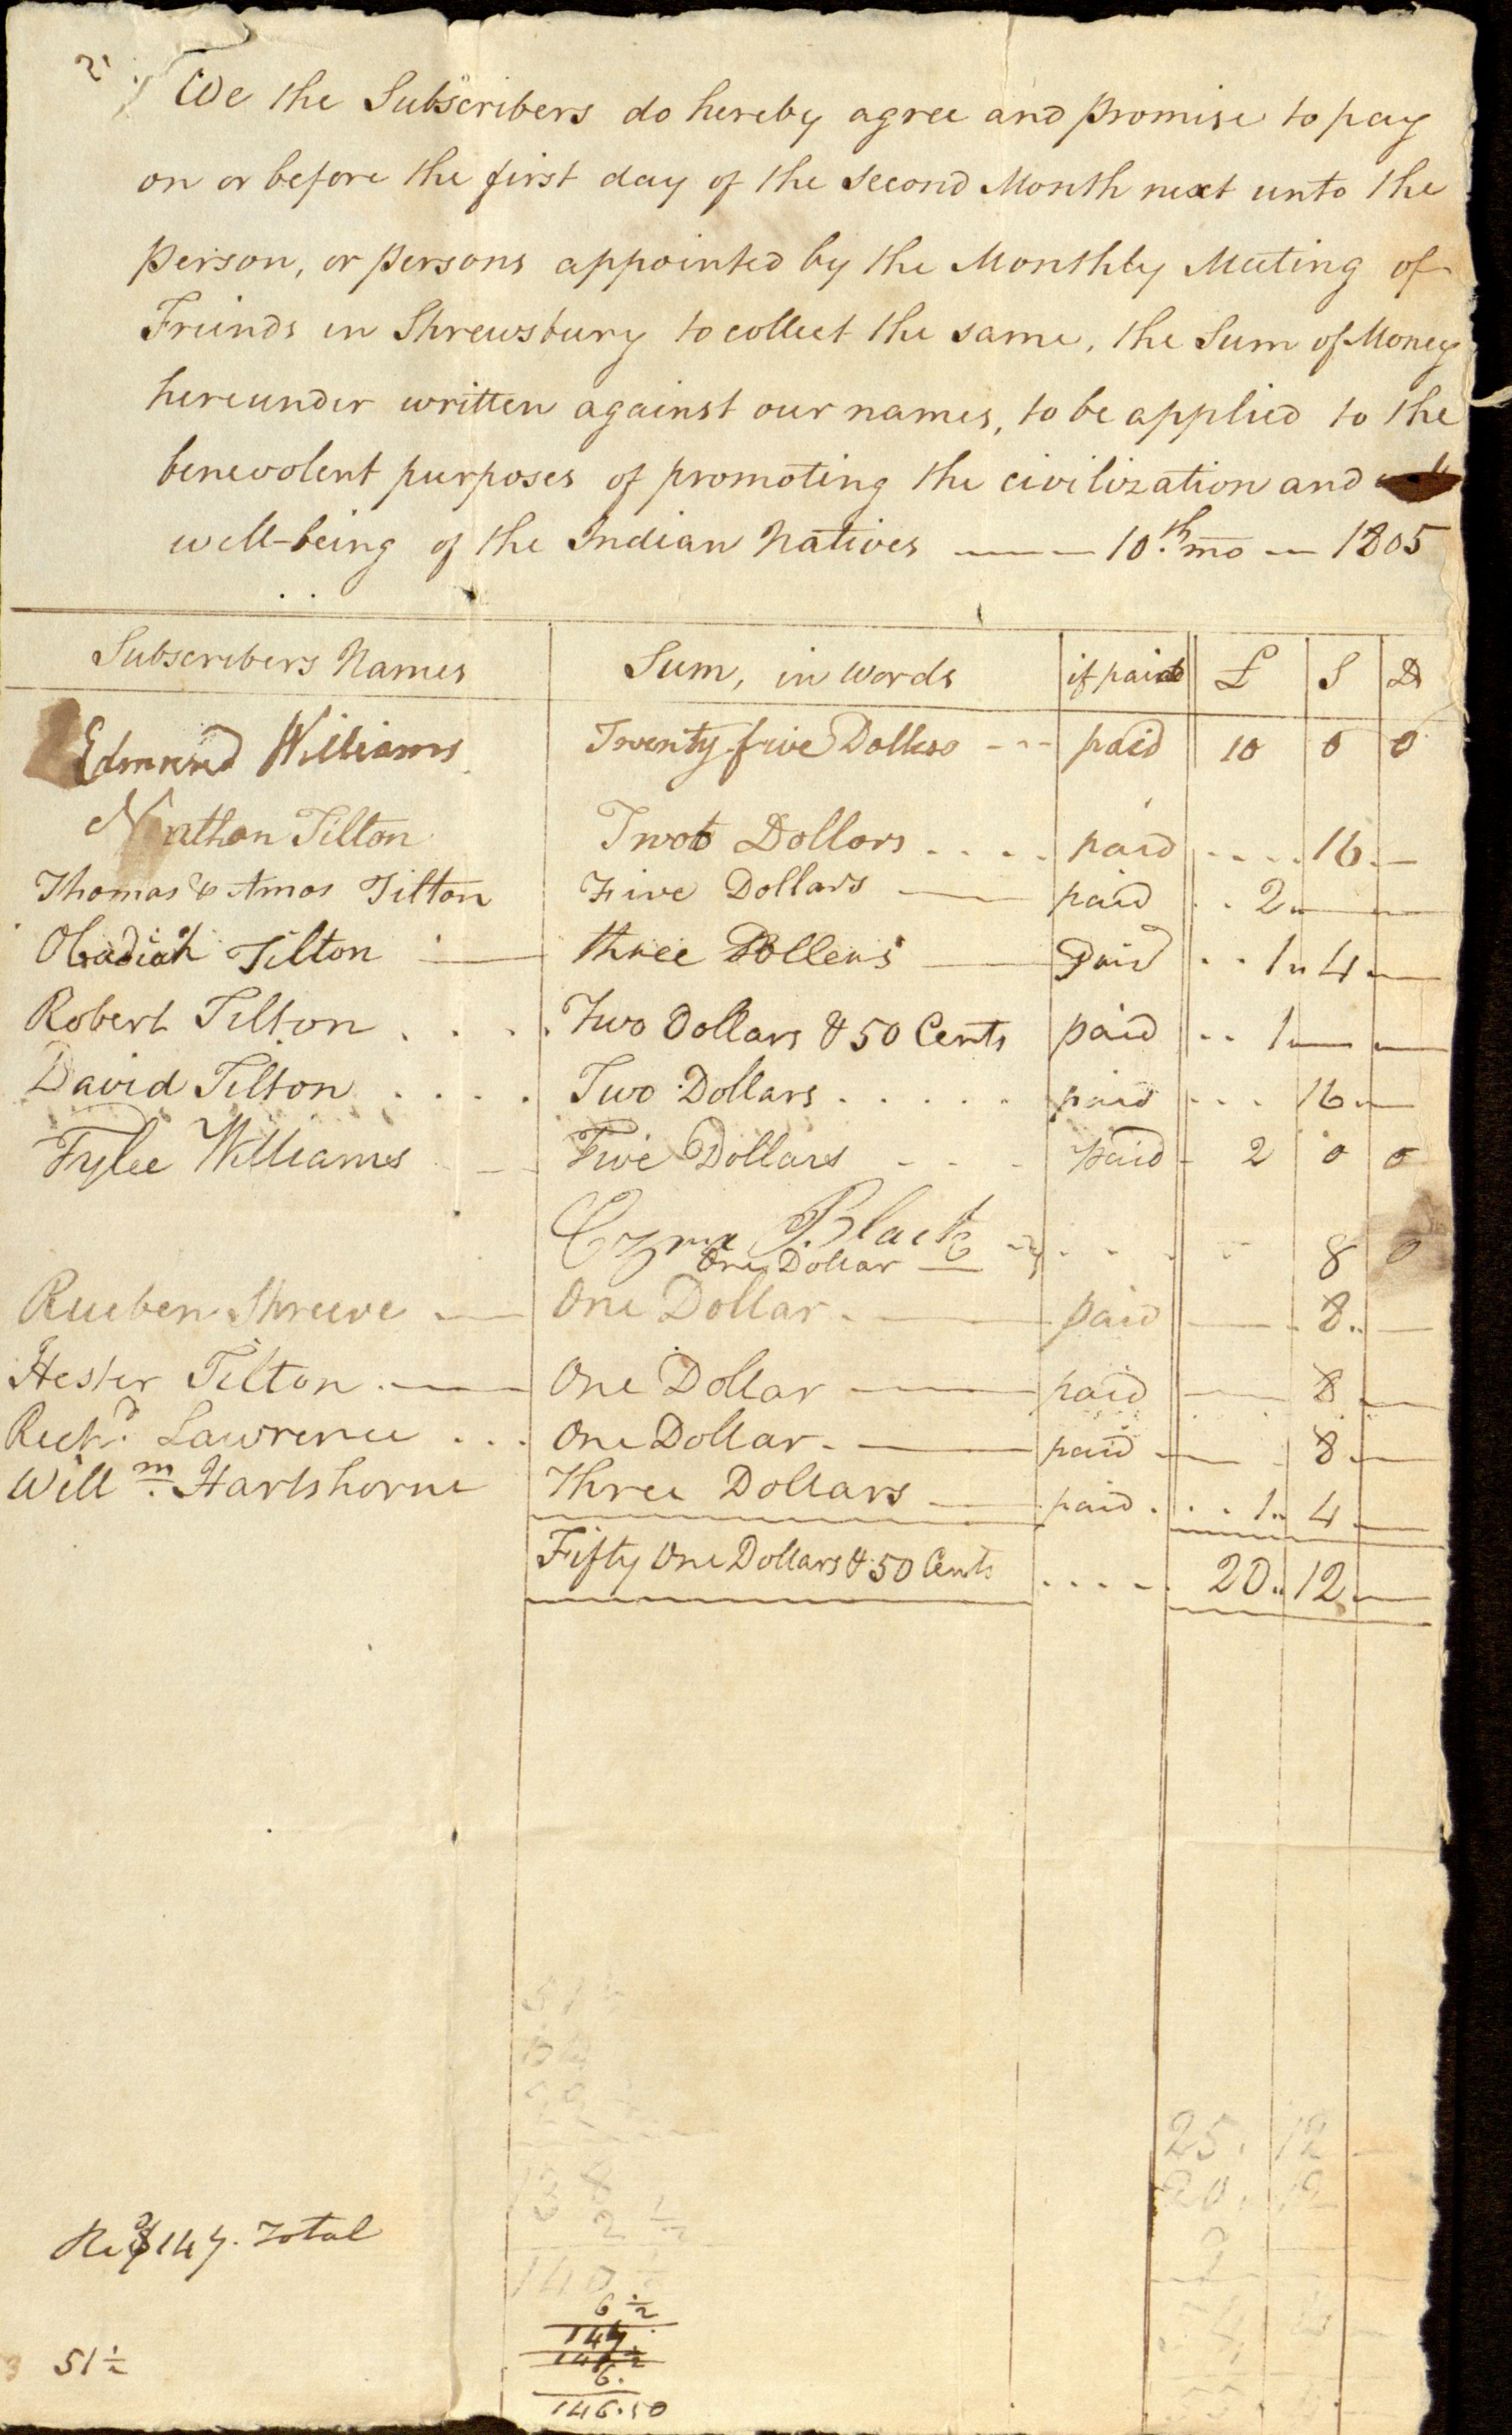 We the Subscribers do hereby agree and promise to pay
on or before the first day of the Second Month next unto the
person, or persons appointed by the Monthly Meeting of
Friends in Shrewsbury to collect the same, the Sum of Money
hereunder written against our names, to be applied to the
benevolent purposes of promoting the civilization and
well-being of the Indian Natives —— 10th mo — 1805
Subscribers Names Sum, in words if paid £ S D
Edmund Williams Twenty five Dollars --- paid 10 0 0
Nathan Tilton Two Dollars .... paid .... 16. —
Thomas & Amos Tilton Five Dollars — paid .. 2.. — —
Obadiah Tilton — three Dollers — Paid .. 1.. 4 —
Robert Tilton .... Two Dollars & 50 Cents paid .. 1 — —
David Tilton .... Two Dollars ..... paid ... 16. —
Tylee Williams -- Five Dollars ... paid - 2 0 0
Black
One Dollar — 8 0
Rueben Shreeve — One Dollar. — paid — 8.. —
Hester Tilton. — One Dollar — paid — 8 —
Richd. Lawrence ... One Dollar. — paid — 8. —
Willm. Hartshorne Three Dollars — paid. .. 1.. 4 —
Fifty One Dollars & 50 Cents ..... 20.. 12. —
25. 12 —
20. 12
138
2 1/2
140 1/2
Recd $147. Total
6 1/2
147.
6.
51 1/2
146.50